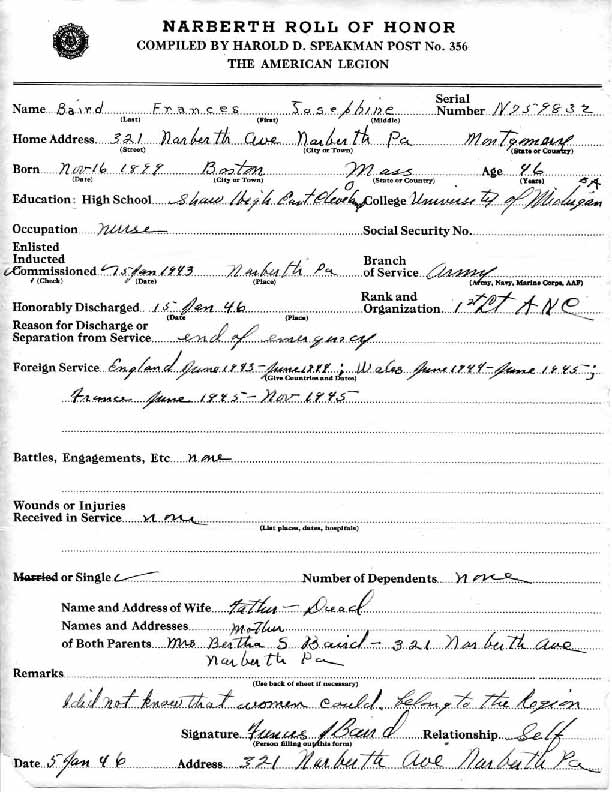 NARBERTH ROLL OF HONOR
COMPILED BY HAROLD D. SPEAKMAN POST No. 356
THE AMERICAN LEGION
Name Baird Frances Josephine Serial Number N759832
(Last) (First) (Middle)
Home Address 321 Narberth Ave Narberth Pa Montgomery
(Street) (City or Town) (State or Country)
Born Nov 16 1899 Boston Mass Age 46
(Date) (City or Town) (State or Country) (Years)
Education: High School Shaw High East Cleveland College University of Michigan BA
Occupation nurse Social Security No.
Enlisted
Inducted Branch
Commissioned 15 Jan 1943 Narberth Pa of Service Army
(Check) (Date) (Place) (Army, Navy, Marine Corps, AAF)
Honorably Discharged 15 Jan 46 Rank and Organization 1st Lt ANC
(Date (Place)
Reason for Discharge or
Separation from Service end of emergency
Foreign Service England June 1943 - June 1944; Wales June 1944 - June 1945;
(Give Countries and Dates)
France June 1945 - Nov 1945
Battles, Engagements, Etc none
Wounds or Injuries
Received in Service none
(List places, dates, hospitals)
Married or Single ✓ Number of Dependents none
Name and Address of Wife Father - Dead
Names and Addresses Mother
of Both Parents Mrs Bertha S Baird - 321 Narberth Ave
Narberth Pa
Remarks
(Use back of sheet if necessary)
I did not know that women could belong to the Legion
Signature Frances J Baird Relationship Self
(Person filling out this form)
Date 5 Jan 46 Address 321 Narberth Ave Narberth Pa